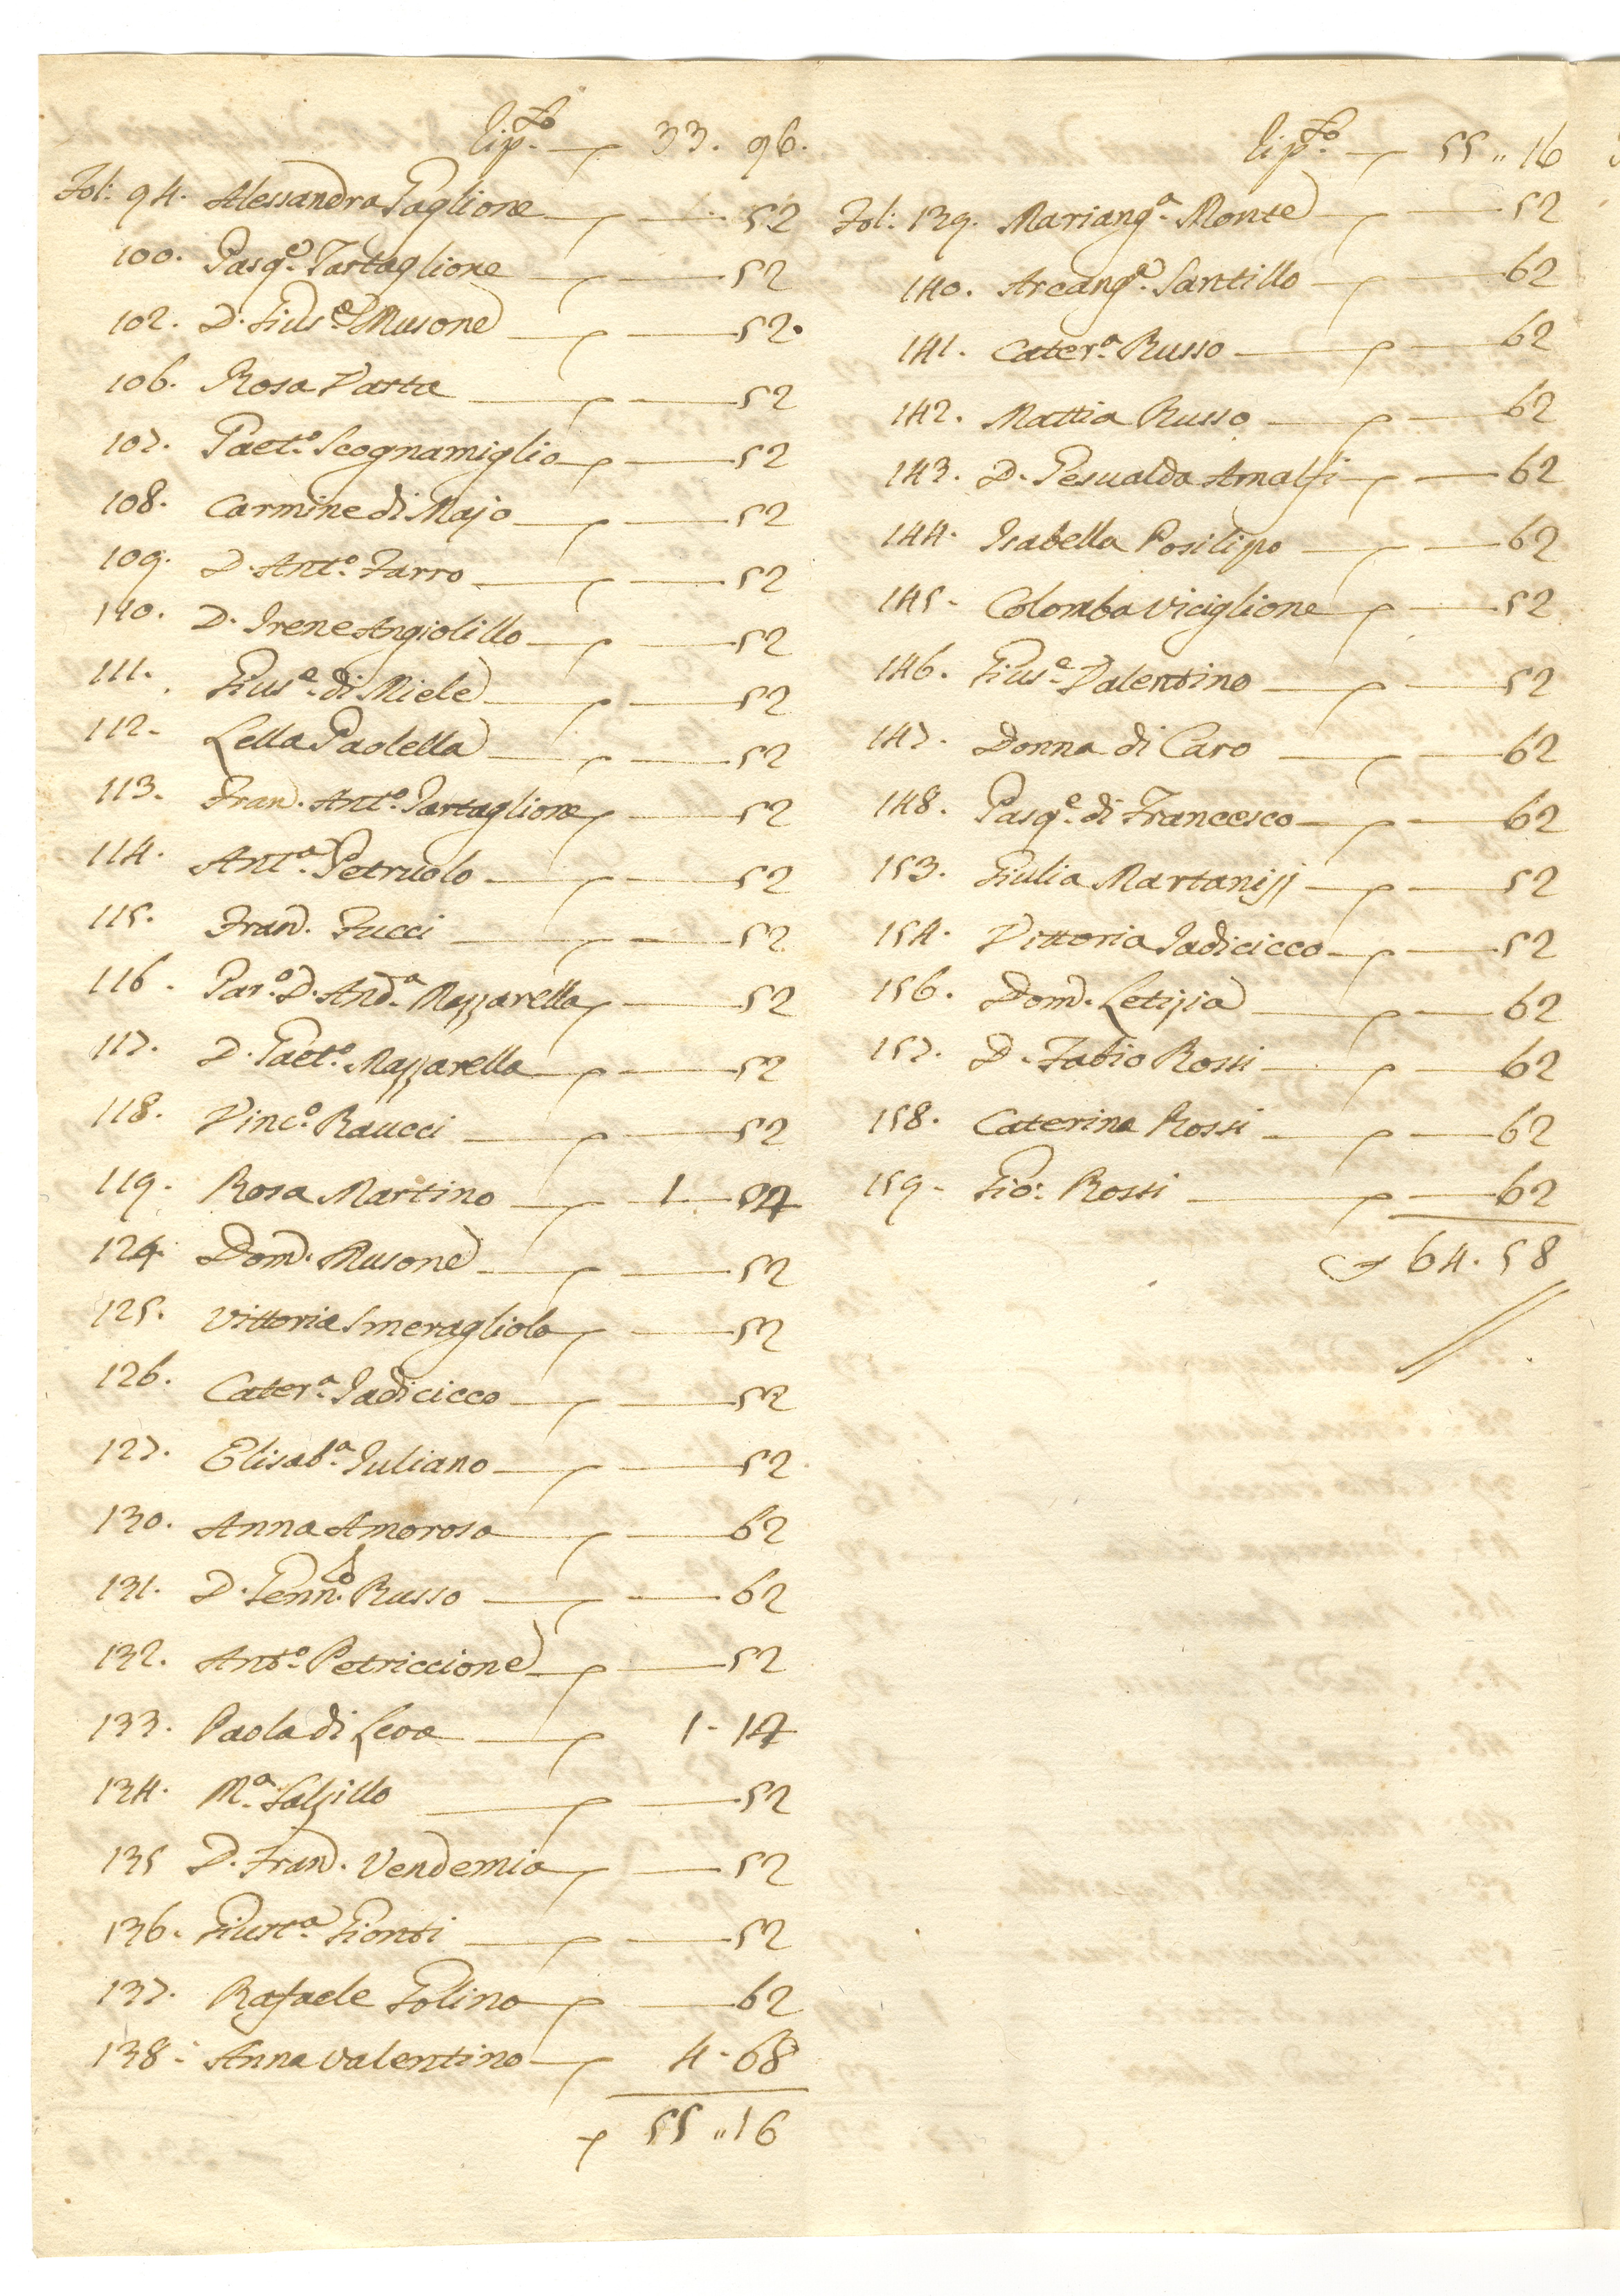 Rip.to — 33. 96.
Fol: 94. Alessandra Taglione — 52
100. Pasq.e Tartaglione — 52
102. D. Gius.e Musone — 52.
106. Rosa Vatta — 52
107. Gaet.o Scognamiglio — 52
108. Carmine di Majo — 52
109. D. Ant.o Farro — 52
110. D. Irene Angiolillo — 52
111. Gius.e di Miele — 52
112. Lella Paolella — 52
113. Fran. Ant.o Tartaglione — 52
114. Ant.a Petruolo — 52
115. Fran. Fucci — 52
116. Par.o D. And.a Mazzarella — 52
117. D. Gaet.o Mazzarella — 52
118. Vinc.o Raucci — 52
119. Rosa Martino — 1 — 94
124. Dom. Musone — 52
125. Vittoria Smeragliolo — 52
126. Cater.a Iadicicco — 52
127. Elisab.a Iuliano — 52
130. Anna Amoroso — 62
131. D. Genn.o Russo — 62
132. Ant.o Petriccione — 52
133. Paola di Leva — 1 - 14
134. M.a Salzillo — 52
135 D. Fran. Vendemia — 52
136. Giust.a Gionti — 52
137. Rafaele Golino — 62
138. Anna Valentino — 4 - 68
55 " 16
Rip.to — 55 " 16
Fol: 139. Mariang.a Monte — 52
140. Arcang.o Santillo — 62
141. Cater.a Russo — 62
142. Mattia Russo — 62
143. D. Gesualda Amalfi — 62
144. Isabella Posilipo — 62
145. Colomba Viciglione — 52
146. Gius.e Valentino — 52
147. Donna di Caro — 62
148. Pasq.e di Francesco — 62
153. Giulia Martanijj — 52
154. Vittoria Iadicicco — 52
156. Dom. Letizia — 62
157. D. Fabio Rossi — 62
158. Caterina Rossi — 62
159. Gio: Rossi — 62
64. 58